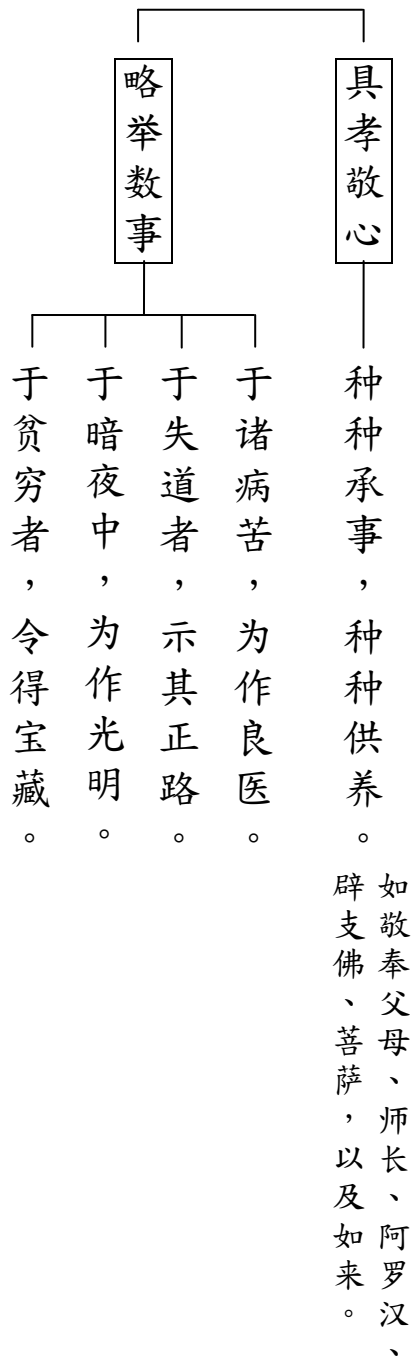 具孝敬心
种种承事，种种供养。
如敬奉父母、师长、阿罗汉、
辟支佛、菩萨，以及如来。
略举数事
于诸病苦，为作良医。
于失道者，示其正路。
于暗夜中，为作光明。
于贫穷者，令得宝藏。